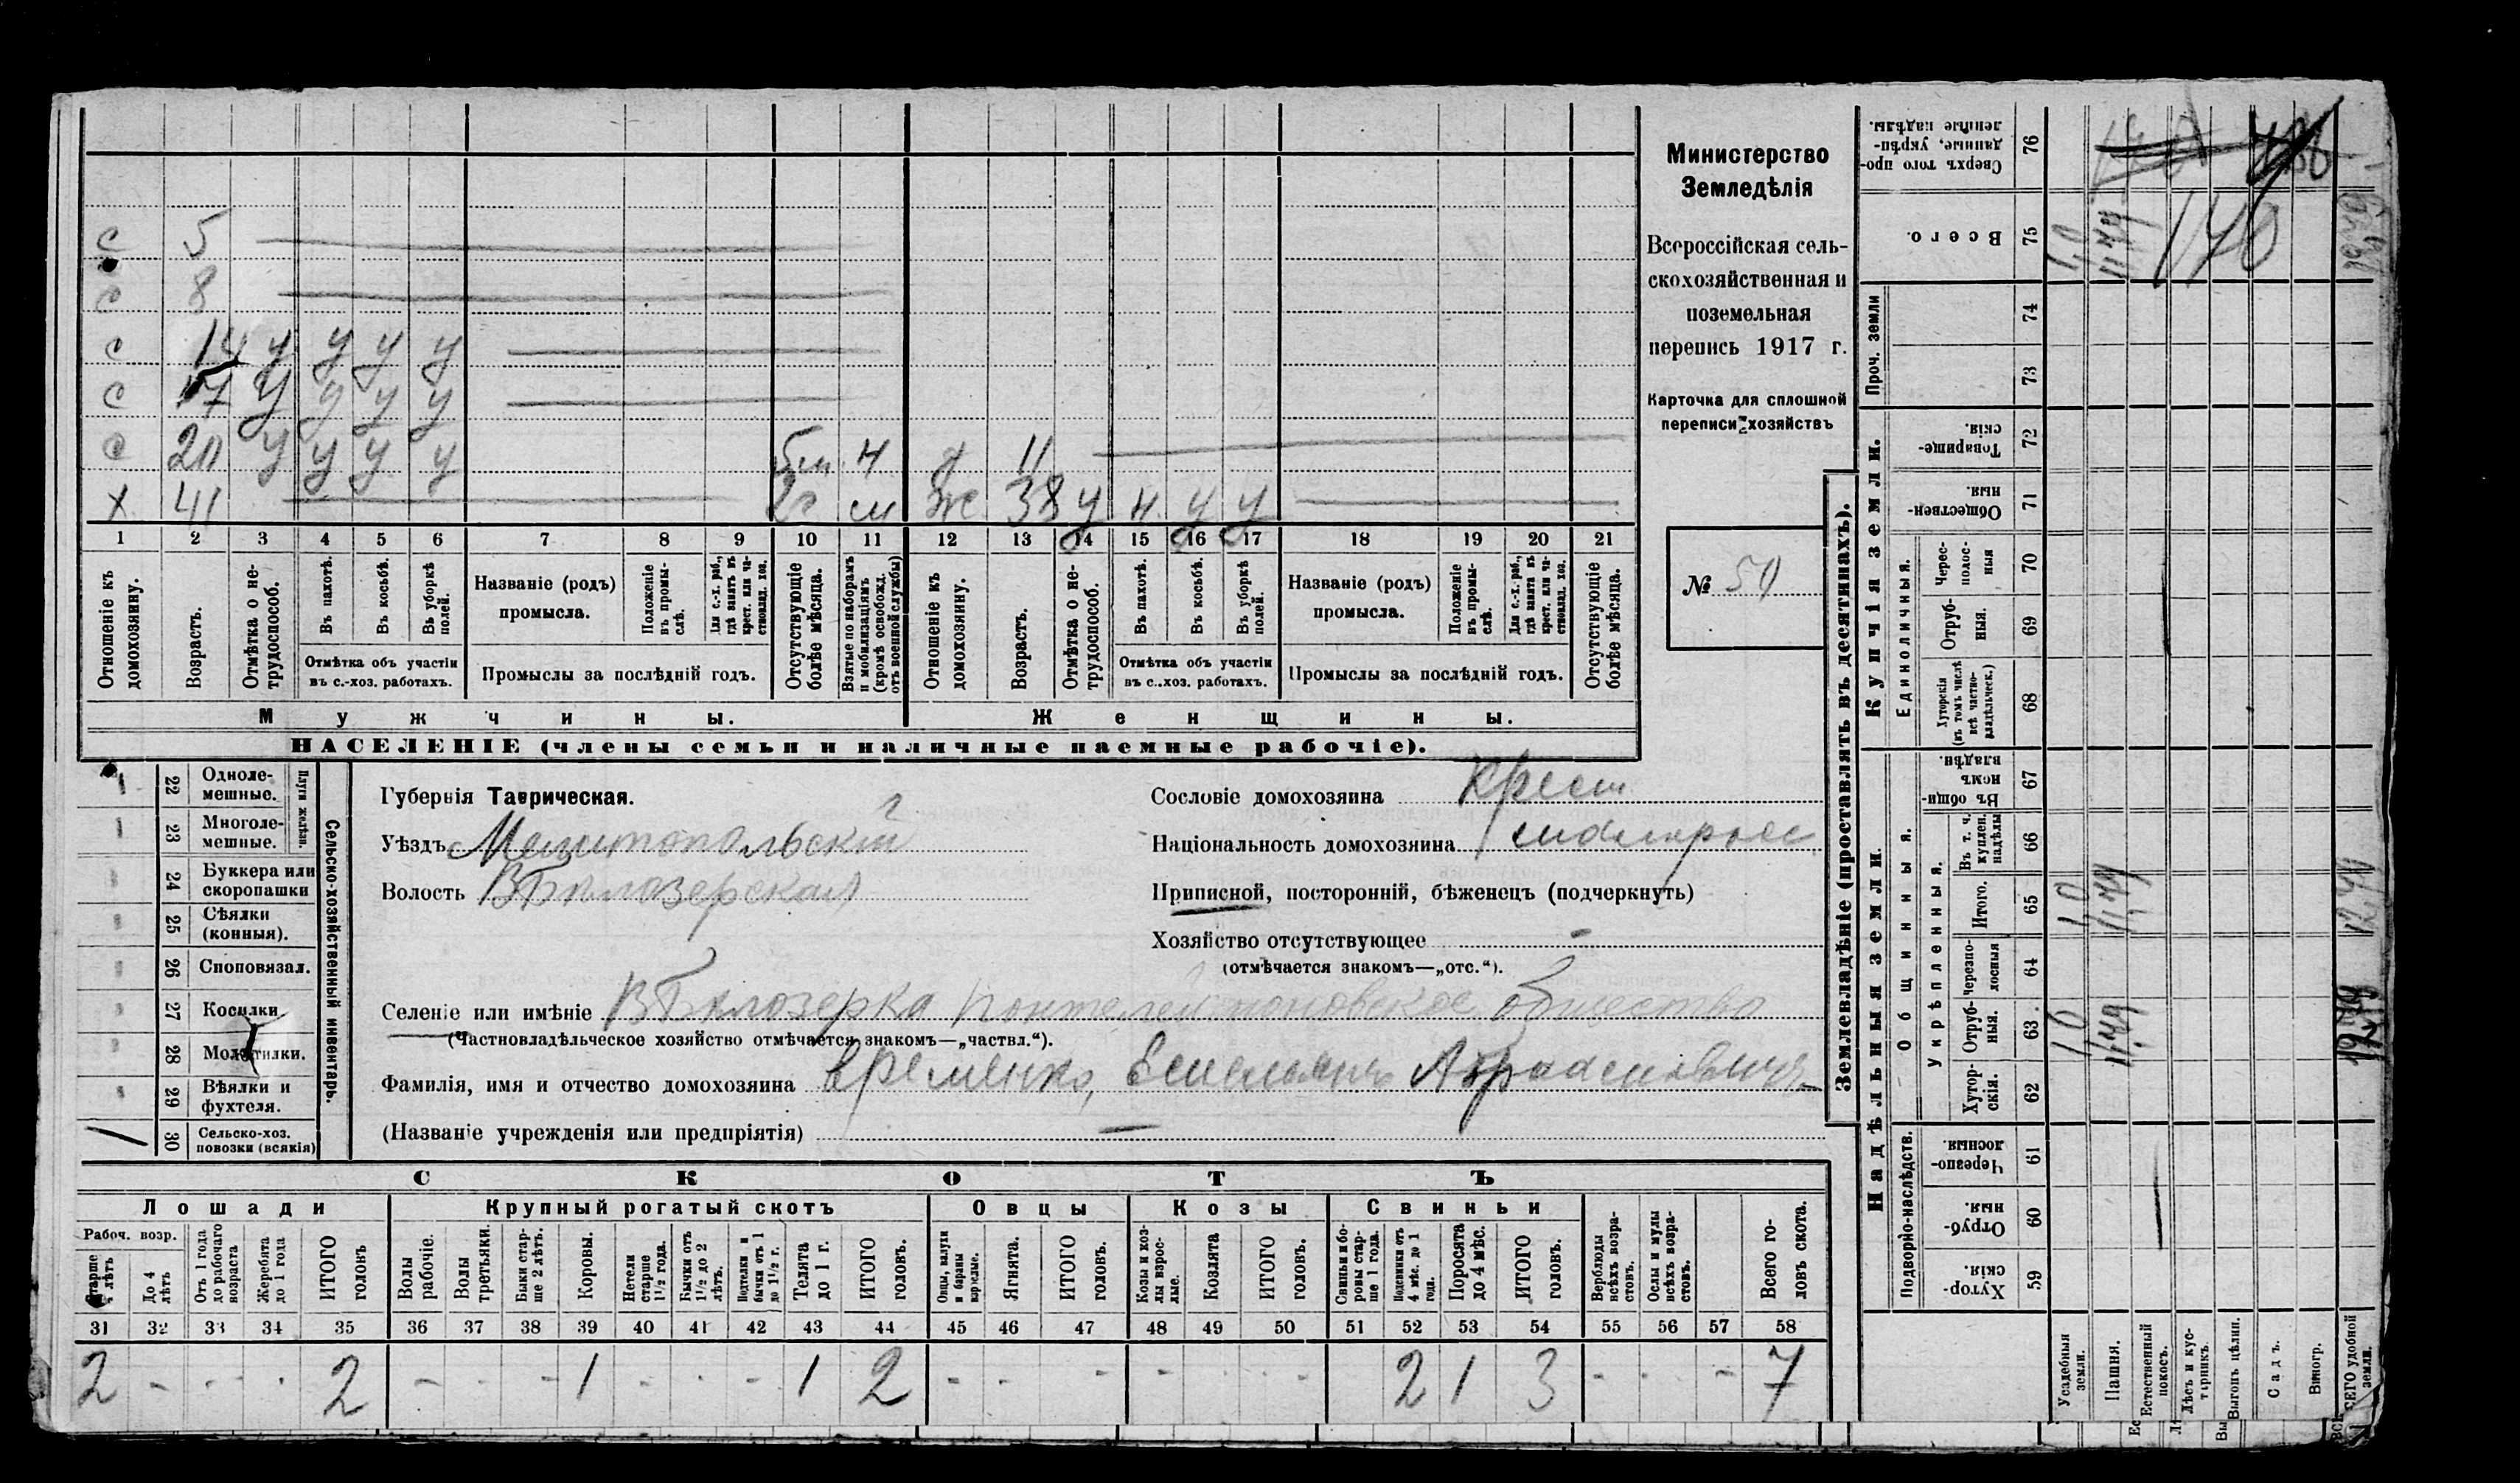 с 5
с 8
с 14 у у у у
с 17 у у у у
с 20 у у у у 5м. н д 11
х 41 2г м ж 38 у н. у у
1 2 3 4 5 6 7 8 9 10 11 12 13 14 15 16 17 18 19 20 21
Отношеніе къ домохозяину.
Возрастъ.
Отмѣтка о нетрудоспособ.
Въ пахотѣ.
Въ косьбѣ.
Въ уборкѣ полей.
Отмѣтка объ участіи
въ с.-хоз. работахъ.
Названіе (родъ)
промысла.
Положеніе въ промыслѣ.
Для с.-х. раб., гдѣ занятъ въ крест. или частновлад. хоз.
Промыслы за послѣдній годъ.
Отсутствующіе болѣе мѣсяца.
Взятые по наборамъ и мобилизаціямъ (кромѣ освобожд. отъ военной службы)
Отношеніе къ домохозяину.
Возрастъ.
Отмѣтка о нетрудоспособ.
Въ пахотѣ.
Въ косьбѣ.
Въ уборкѣ полей.
Отмѣтка объ участіи
въ с.-хоз. работахъ.
Названіе (родъ)
промысла.
Положеніе въ промыслѣ.
Для с.-х. раб., гдѣ занятъ въ крест. или частновлад. хоз.
Промыслы за послѣдній годъ.
Отсутствующіе болѣе мѣсяца.
Мужчины.
Женщины.
НАСЕЛЕНІЕ (члены семьи и наличные наемные рабочіе).
Министерство
Земледѣлія
Всероссійская сель-
скохозяйственная и
поземельная
перепись 1917 г.
Карточка для сплошной
переписи хозяйствъ
№ 50
22 Одноле-
мешные.
23 Многоле-
мешные.
Плуги желѣзн.
24 Буккера или
скоропашки
25 Сѣялки
(конныя).
26 Споповязал.
27 Косилки
28 Молотилки.
29 Вѣялки и
фухтеля.
30 Сельско-хоз.
повозки (всякія)
Сельско-хозяйственный инвентарь.
Губернія Таврическая.
Уѣздъ Мелитопольскій
Волость В Бѣлозерская
Сословіе домохозяина Крест
Національность домохозяина малорос
Приписной, посторонній, бѣженецъ (подчеркнуть)
Хозяйство отсутствующее -
(отмѣчается знакомъ—„отс.“).
Селеніе или имѣніе В Бѣлозерка Понтелеймоновское общество
(Частновладѣльческое хозяйство отмѣчается знакомъ—„частвл.“).
Фамилія, имя и отчество домохозяина Еременко, Емельянъ
(Названіе учрежденія или предпріятія) —
СКОТЪ
Лошади
Крупный рогатый скотъ
Овцы
Козы
Свиньи
Рабоч. возр.
Старше 4 лѣтъ
До 4 лѣтъ
Отъ 1 года до рабочаго возраста
Жеребята до 1 года
ИТОГО головъ
Волы рабочіе.
Волы третьяки.
Быки старше 2 лѣтъ.
Коровы.
Нетели старше 1½ года.
Бычки отъ 1½ до 2 лѣтъ.
Подтелки и бычки отъ 1 до 1½ г.
Телята до 1 г.
ИТОГО головъ.
Овцы, валухи и бараны взрослые.
Ягнята.
ИТОГО головъ.
Козы и козлы взрослые.
Козлята
ИТОГО головъ.
Свиньи и боровы старше 1 года.
Подсвинки отъ 4 мѣс. до 1 года.
Поросята до 4 мѣс.
ИТОГО головъ.
Верблюды всѣхъ возрастовъ.
Ослы и мулы всѣхъ возрастовъ.
Всего головъ скота.
31 32 33 34 35 36 37 38 39 40 41 42 43 44 45 46 47 48 49 50 51 52 53 54 55 56 57 58
2 - - - 2 - - - 1 - - - 1 2 - - - - - - 2 1 3 - - - 7
Землевладѣніе (проставлять въ десятинахъ).
Купчія земли.
Надѣльныя земли.
Сверхъ того проданные, укрѣпленные надѣлы. 76
Всего. 75
Проч. земли 74 73
Товарищескія. 72
Общественныя. 71
Единоличныя.
Чересполосныя 70
Отрубныя. 69
Хуторскія (въ томъ числѣ всѣ частновладѣльческ.) 68
Общинныя.
Въ общинномъ владѣн. 67
Укрѣпленныя.
Въ т. ч. куплен. надѣлы 66
Итого. 65
Черезполосныя 64
Отрубныя. 63
Хуторскія. 62
Подворно-наслѣдств.
Черезполосныя 61
Отрубныя. 60
Хуторскія. 59
Усадебныя земли.
Пашня.
Естественный покосъ.
Лѣсъ и кустарникъ.
Выгонъ цѣлин.
Садъ.
Виногр.
ВСЕГО удобной земли.
1,0 11,49
1,0 11,49
1,0 11,49